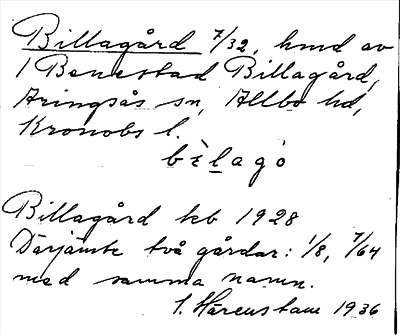 Billagård 7/32, hmd av
1 Benestad Billagård,
Aringsås sn, Allbo hd,
Kronobs l.
Billagård kb 1928
Därjämte två gårdar: 1/8, 7/64
med samma namn.
1936